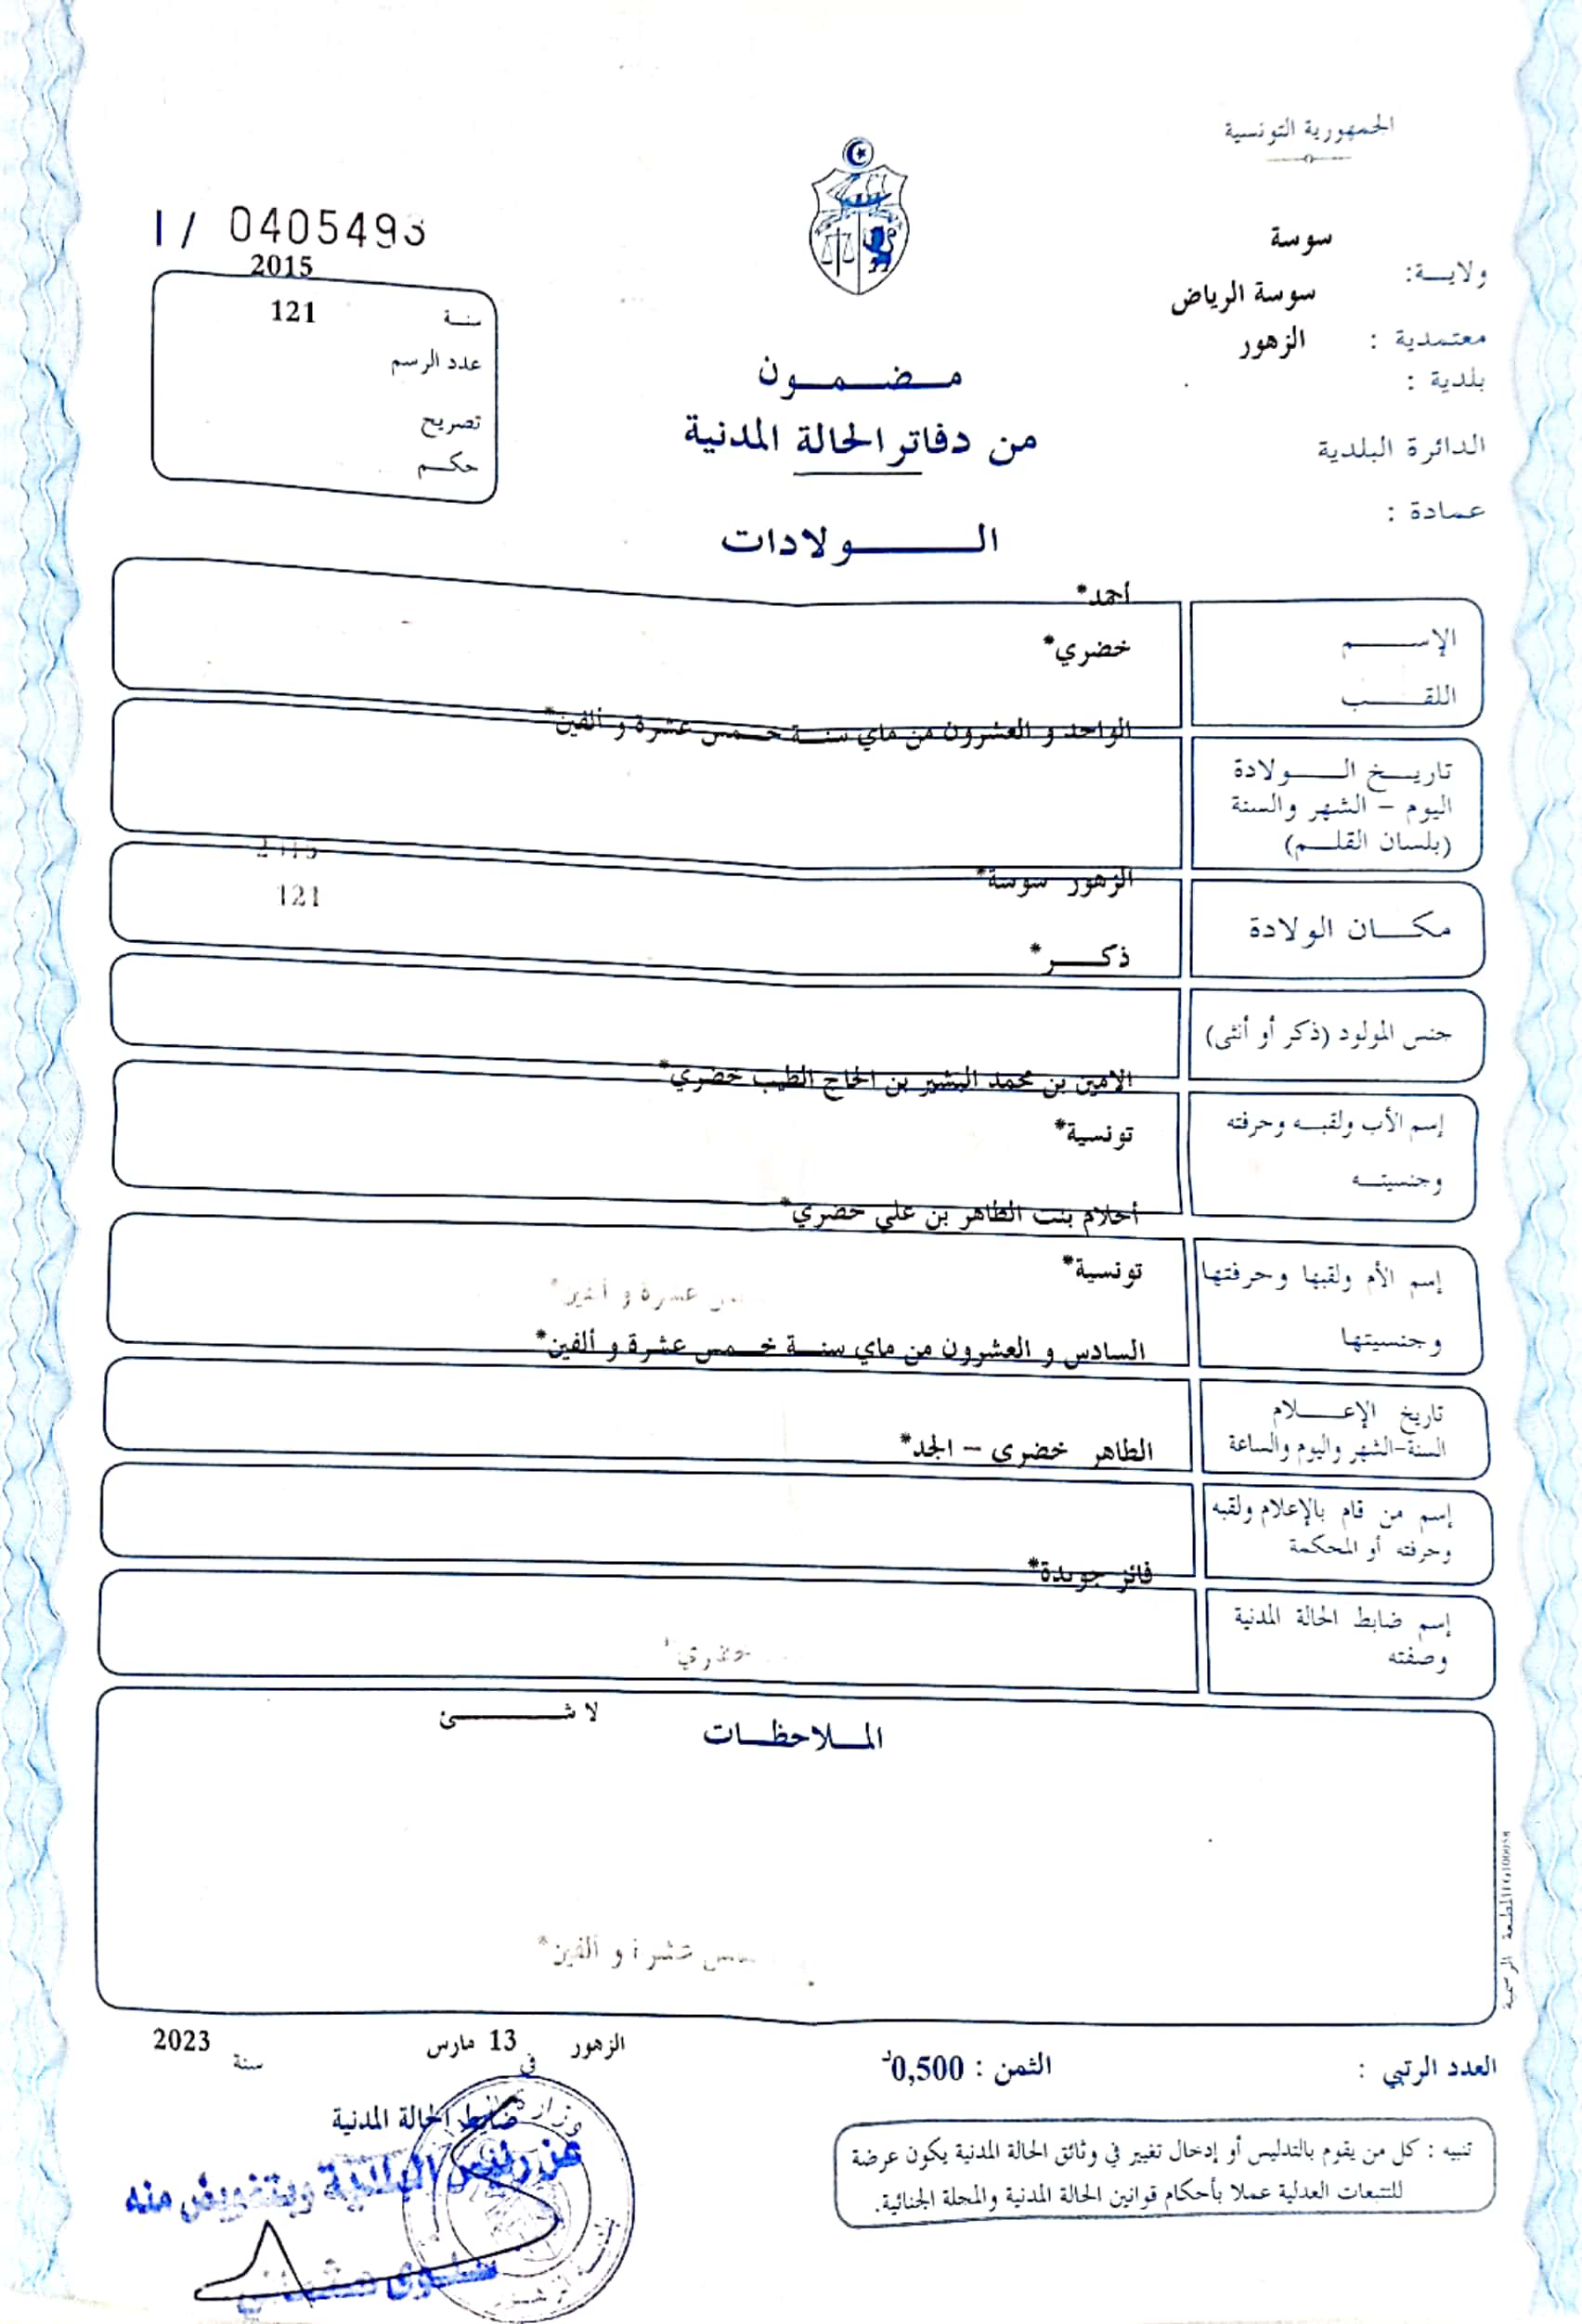 الجمهورية التونسية
سوسة
ولايـــة:
سوسة الرياض
معتمدية :
الزهور
بلدية :
الدائرة البلدية
عمادة :
I / 0405493
2015
سنـة 121
عدد الرسم
تصريح
حكـــم
مـــضـــمـــون
من دفاتر الحالة المدنية
الــــــــولادات
أحمد*
الإســــــم
خضري*
اللقـــــب
الواحد و العشرون من ماي سنــة خـــمس عشرة و ألفين*
تاريــخ الــــــولادة
اليوم – الشهر والسنة
(بلسان القلــم)
2015
الزهور سوسة*
121
مكـــان الولادة
ذكـــــر*
جنس المولود (ذكر أو أنثى)
الامين بن محمد البشير بن الحاج الطيب خضري*
إسم الأب ولقبــه وحرفته
تونسية*
وجنسيتــه
أحلام بنت الطاهر بن علي خضري*
إسم الأم ولقبها وحرفتها
تونسية*
عشرة و ألفين*
وجنسيتها
السادس و العشرون من ماي سنــة خـــمس عشرة و ألفين*
تاريخ الإعــــلام
السنة-الشهر واليوم والساعة
الطاهر خضرى – الجد*
إسم من قام بالإعلام ولقبه
وحرفته أو المحكمة
فائز جويدة*
إسم ضابط الحالة المدنية
وصفته
خضري*
لا شـــــــئ
المــلاحظــات
عشرة و ألفين*
المطبعة الرسمية
الزهور في 13 مارس سنة 2023
العدد الرتبي :
الثمن : 0,500د
ضابط الحالة المدنية
عن رئيس البلدية وبتفويض منه
تنبيه : كل من يقوم بالتدليس أو إدخال تغيير في وثائق الحالة المدنية يكون عرضة
للتتبعات العدلية عملا بأحكام قوانين الحالة المدنية والمجلة الجنائية.